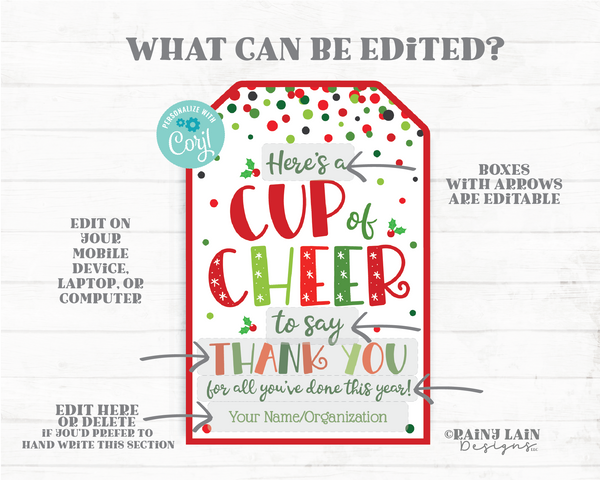 WHAT CAN BE EDITED?
PERSONALIZE WITH
Corjl
Here's a
CUP of
CHEER
to say
THANK YOU
for all you've done this year!
Your Name/Organization
BOXES
WITH ARROWS
ARE EDITABLE
EDIT ON
YOUR
MOBILE
DEVICE,
LAPTOP, OR
COMPUTER
EDIT HERE
OR DELETE
IF YOU'D PREFER TO
HAND WRITE THIS SECTION
©RAINY LAIN
Designs LLC